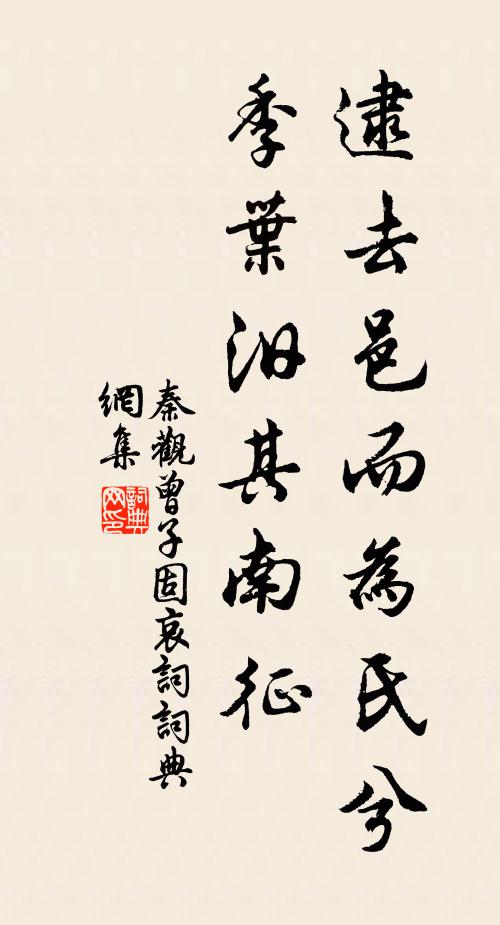 逮去邑而為氏兮
季葉汨其南征
秦觀曾子固哀詞詞典
網集
詞典
网印